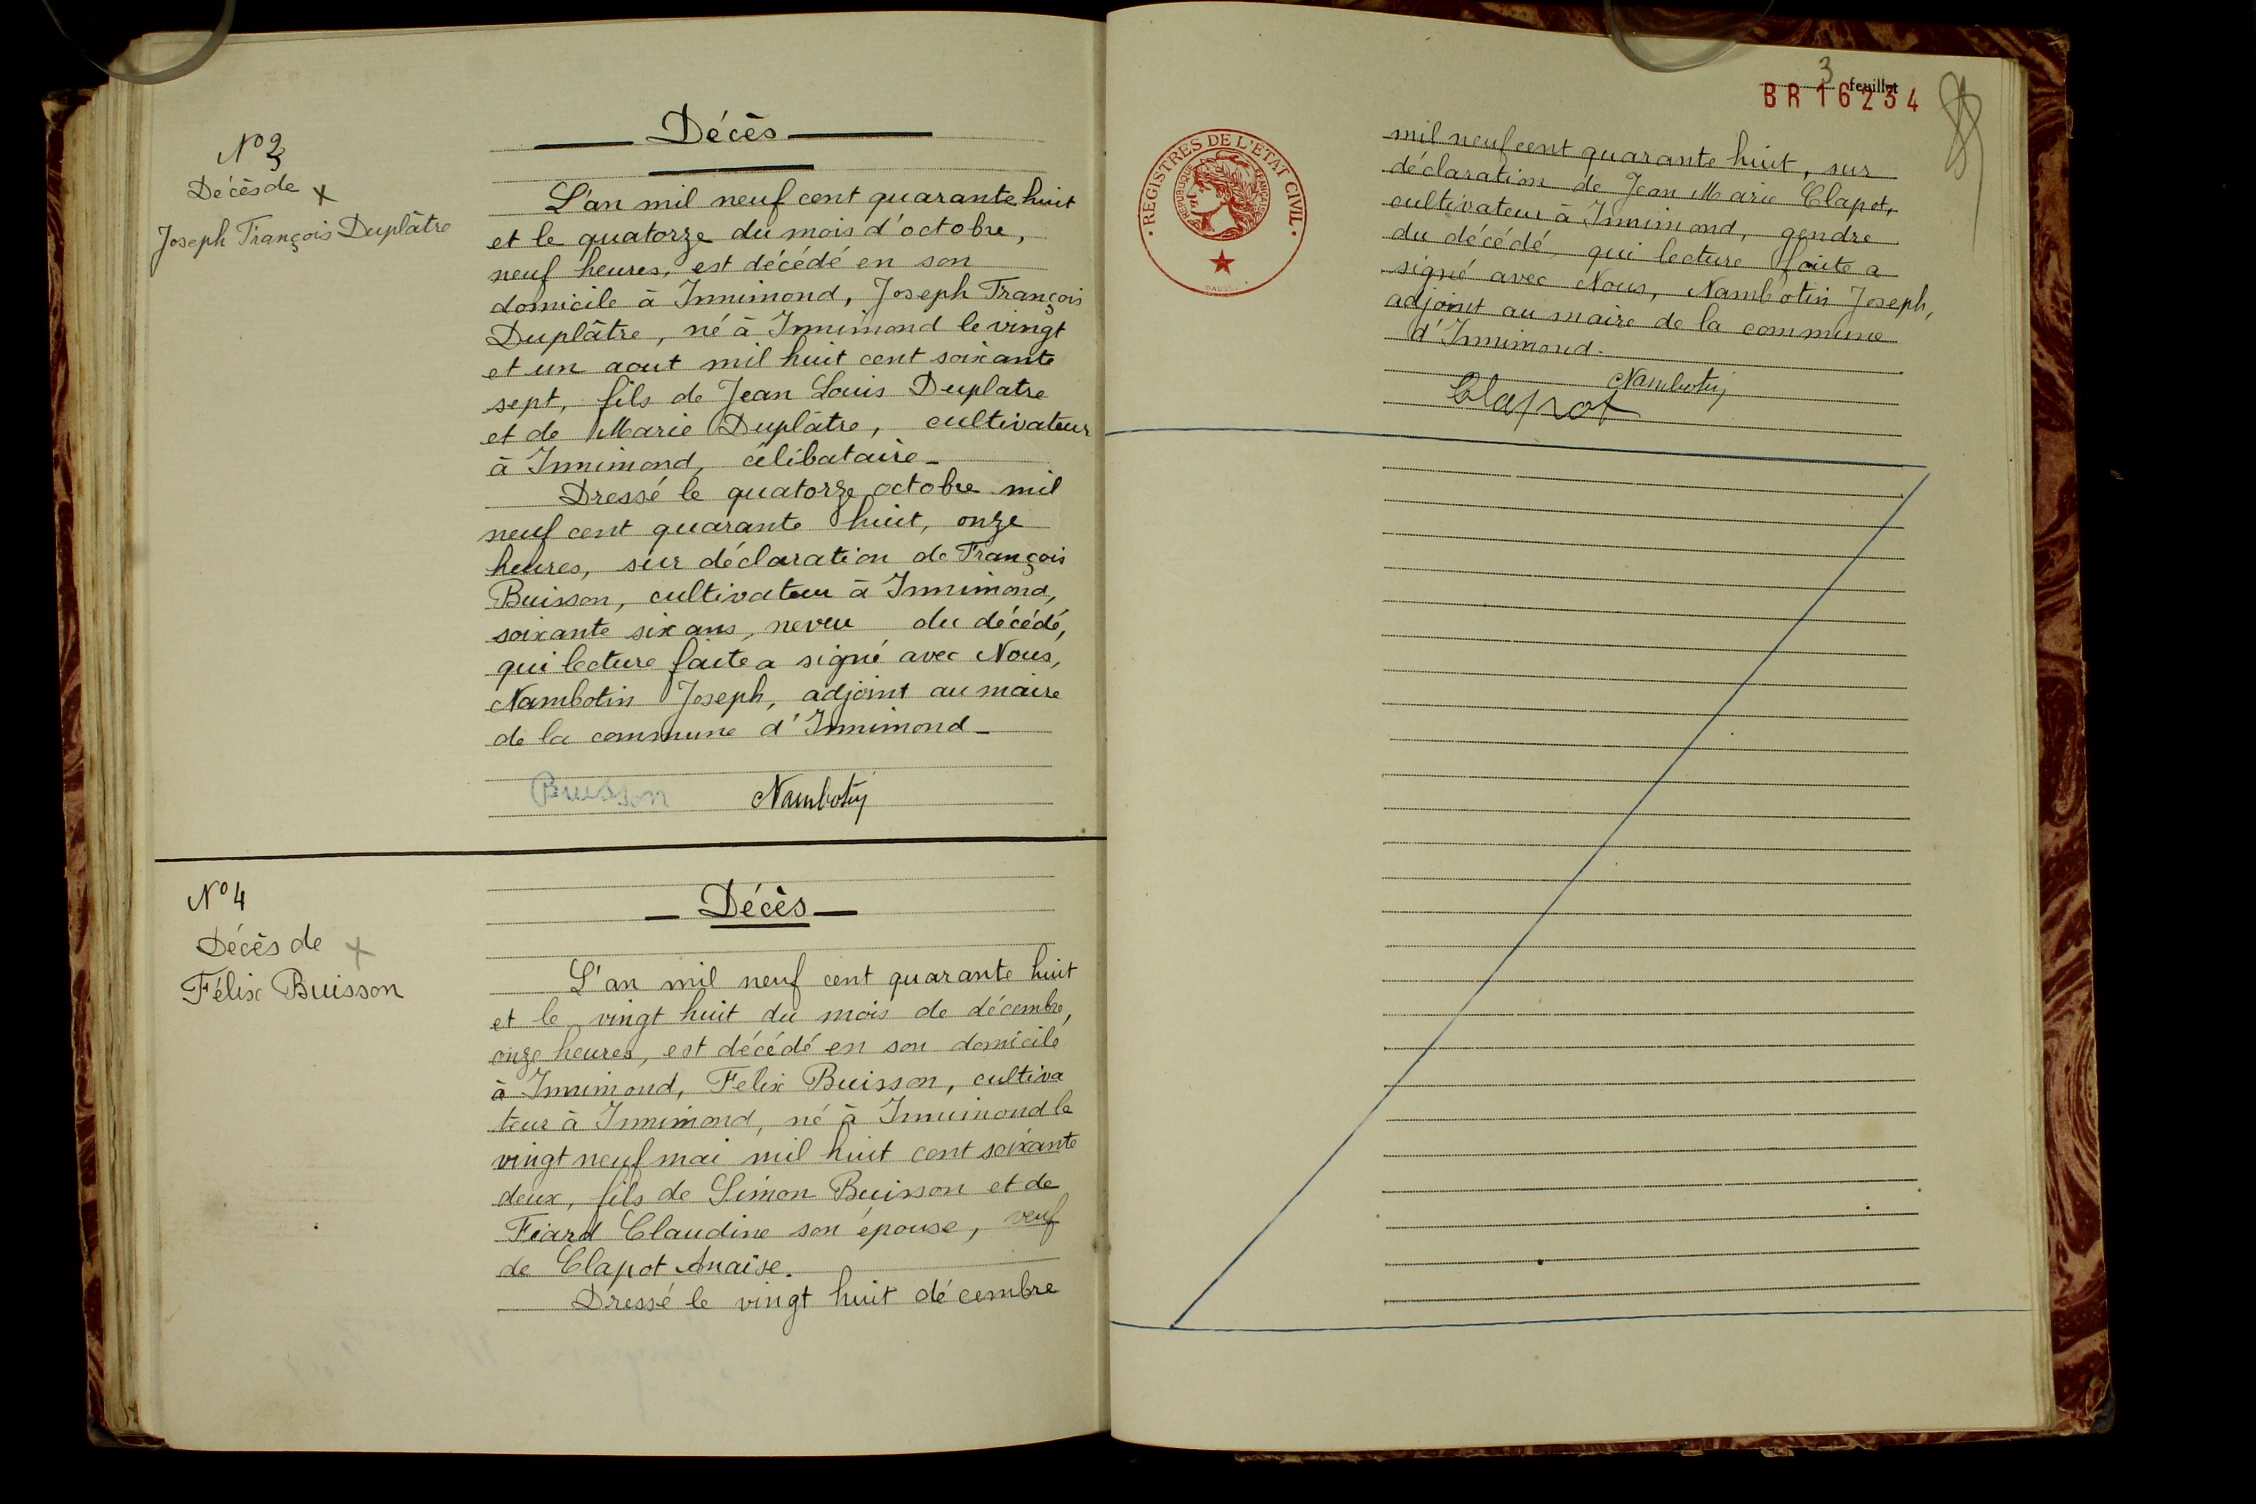 Décès
N° 3
Décès de
Joseph François Duplâtre
L'an mil neuf cent quarante huit
et le quatorze du mois d'octobre,
neuf heures, est décédé en son
domicile à Innimond, Joseph François
Duplâtre, né à Innimond le vingt
et un aout mil huit cent soixante
sept, fils de Jean Louis Duplatre
et de Marie Duplâtre, cultivateur
à Innimond, célibataire_
Dressé le quatorze octobre mil
neuf cent quarante huit, onze
heures, sur déclaration de François
Buisson, cultivateur à Innimond,
soixante six ans, neveu du décédé,
qui lecture faite a signé avec Nous,
Nambotin Joseph, adjoint au maire
de la commune d'Innimond_
Buisson Nambotin
N° 4
Décès de
Félix Buisson
Décès
L'an mil neuf cent quarante huit
et le vingt huit du mois de décembre,
onze heures, est décédé en son domicile
à Innimond, Felix Buisson, cultiva
teur à Innimond, né à Innimond le
vingt neuf mai mil huit cent soixante
deux, fils de Simon Buisson et de
Fiard Claudine son épouse, veuf
de Clapot Anaïse.
Dressé le vingt huit décembre
3 feuillet
BR 16234
REGISTRES DE L'ETAT CIVIL
REPUBLIQUE FRANÇAISE
mil neuf cent quarante huit, sur
déclaration de Jean Marie Clapot,
cultivateur à Innimond, gendre
du décédé, qui lecture faite a
signé avec Nous, Nambotin Joseph,
adjoint au maire de la commune
d'Innimond.
Nambotin
Clapot